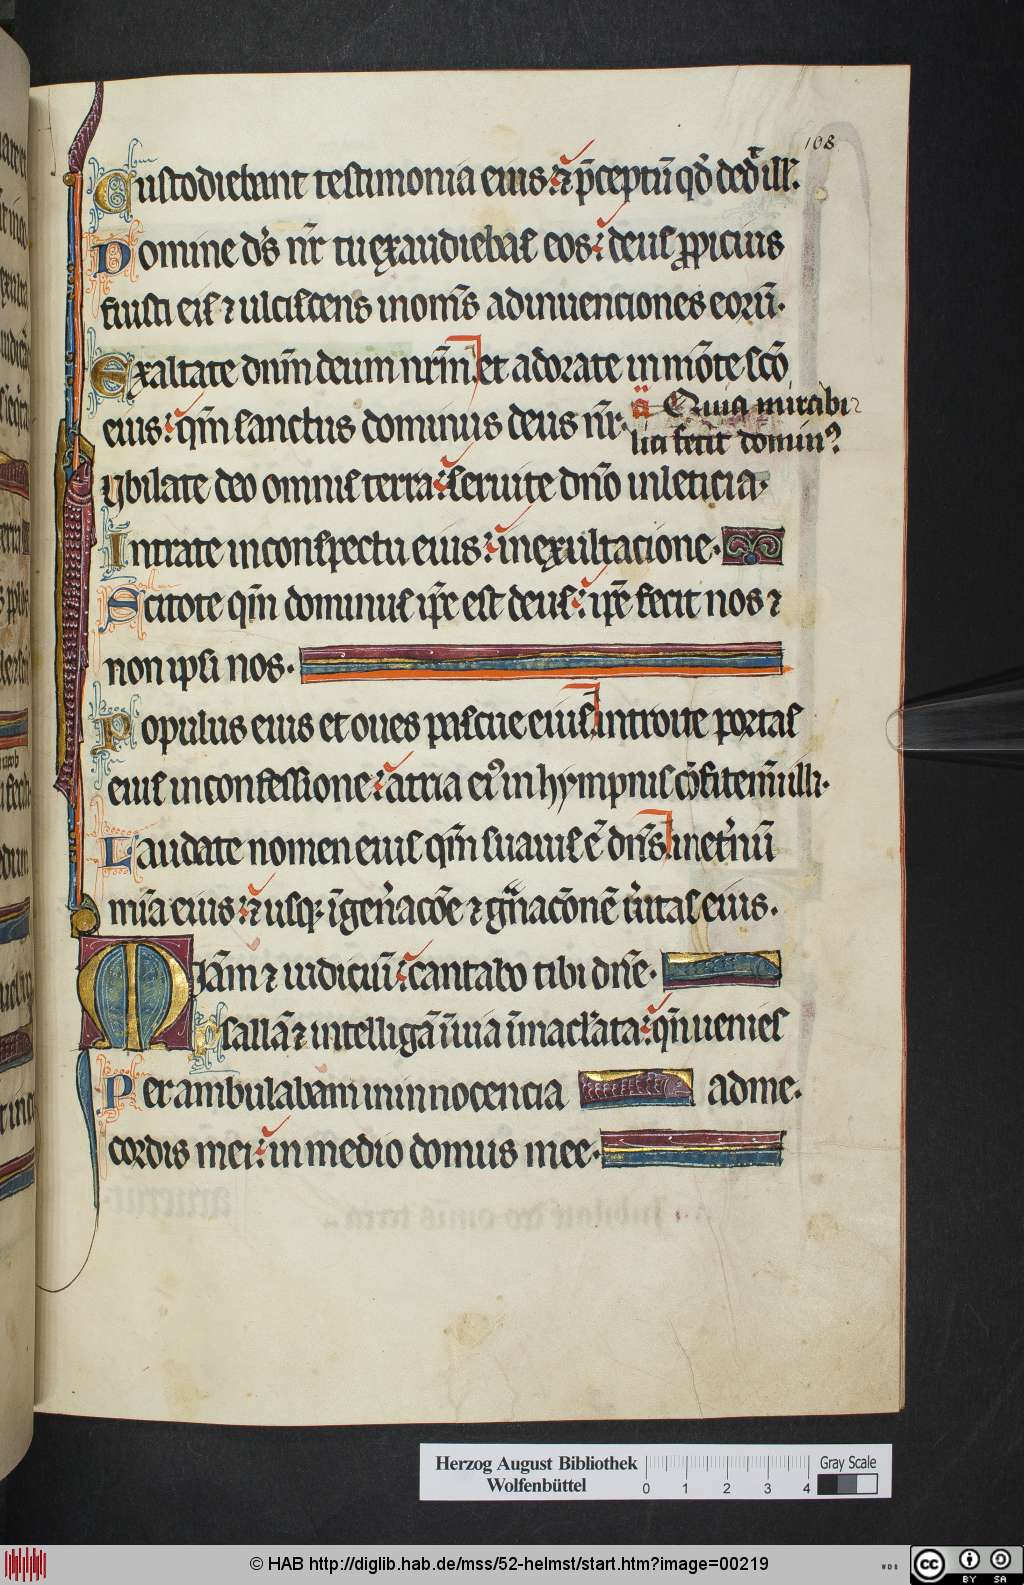 108
Custodiebant testimonia eius ⁊ p̄ceptū qđ dedͭ ill'.
Domine d̄s nr̄ tu exaudiebas eos deus ꝓpicius
fuisti eis ⁊ ulciscens in om̄s adinuenciones eorū.
Exaltate dn̄m deum nr̄m et adorate in mōte scō
eius qm̄ sanctus dominus deus nr̄.
a Quia mirabi
lia fecit dominꝰ
ybilate deo omnis terra seruite dn̄o in leticia
Intrate in conspectu eius in exultacione.
Scitote qm̄ dominus ip̄e est deus ip̄e fecit nos ⁊
non ipsi nos.
Populus eius et oues pascue eius introite portas
eius in confessione atria eiꝰ in hympnis cōfitem̄ illi.
Laudate nomen eius qm̄ suauis ē dn̄s in et'nū
mīa eius ⁊ usq; ī gen'acōe ⁊ gn̄acōnē u'itas eius.
Miam ⁊ iudiciū cantabo tibi dn̄e.
psallā ⁊ intelligā ī uia īmac'lata qn̄ uenies
Perambulabam in innocencia ad me.
cordis mei in medio domus mee.
Herzog August Bibliothek
Wolfenbüttel
0 1 2 3 4
Gray Scale
© HAB http://diglib.hab.de/mss/52-helmst/start.htm?image=00219
WDB
CC BY SA